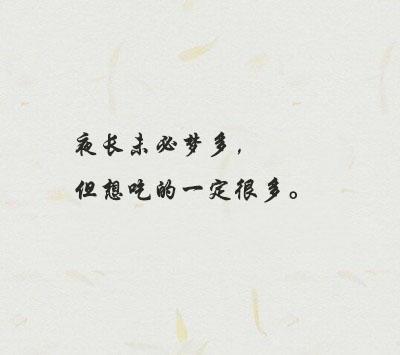 夜长未必梦多，
但想吃的一定很多。